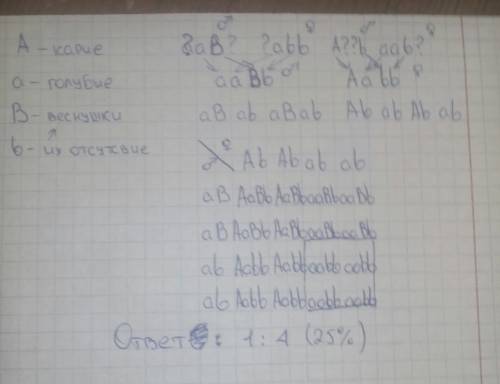 A - карие
a - голубые
B - веснушки
b - их отсуствие
?aB? ♂ ?abb ♀ A??b ♂ aab? ♀
aaBb ♂ Aabb ♀
aB ab aB ab Ab ab Ab ab
♂ ♀ Ab Ab ab ab
aB AaBb AaBb aaBb aaBb
aB AaBb AaBb aaBb aaBb
ab Aabb Aabb aabb aabb
ab Aabb Aabb aabb aabb
Ответ: 1:4 (25%)